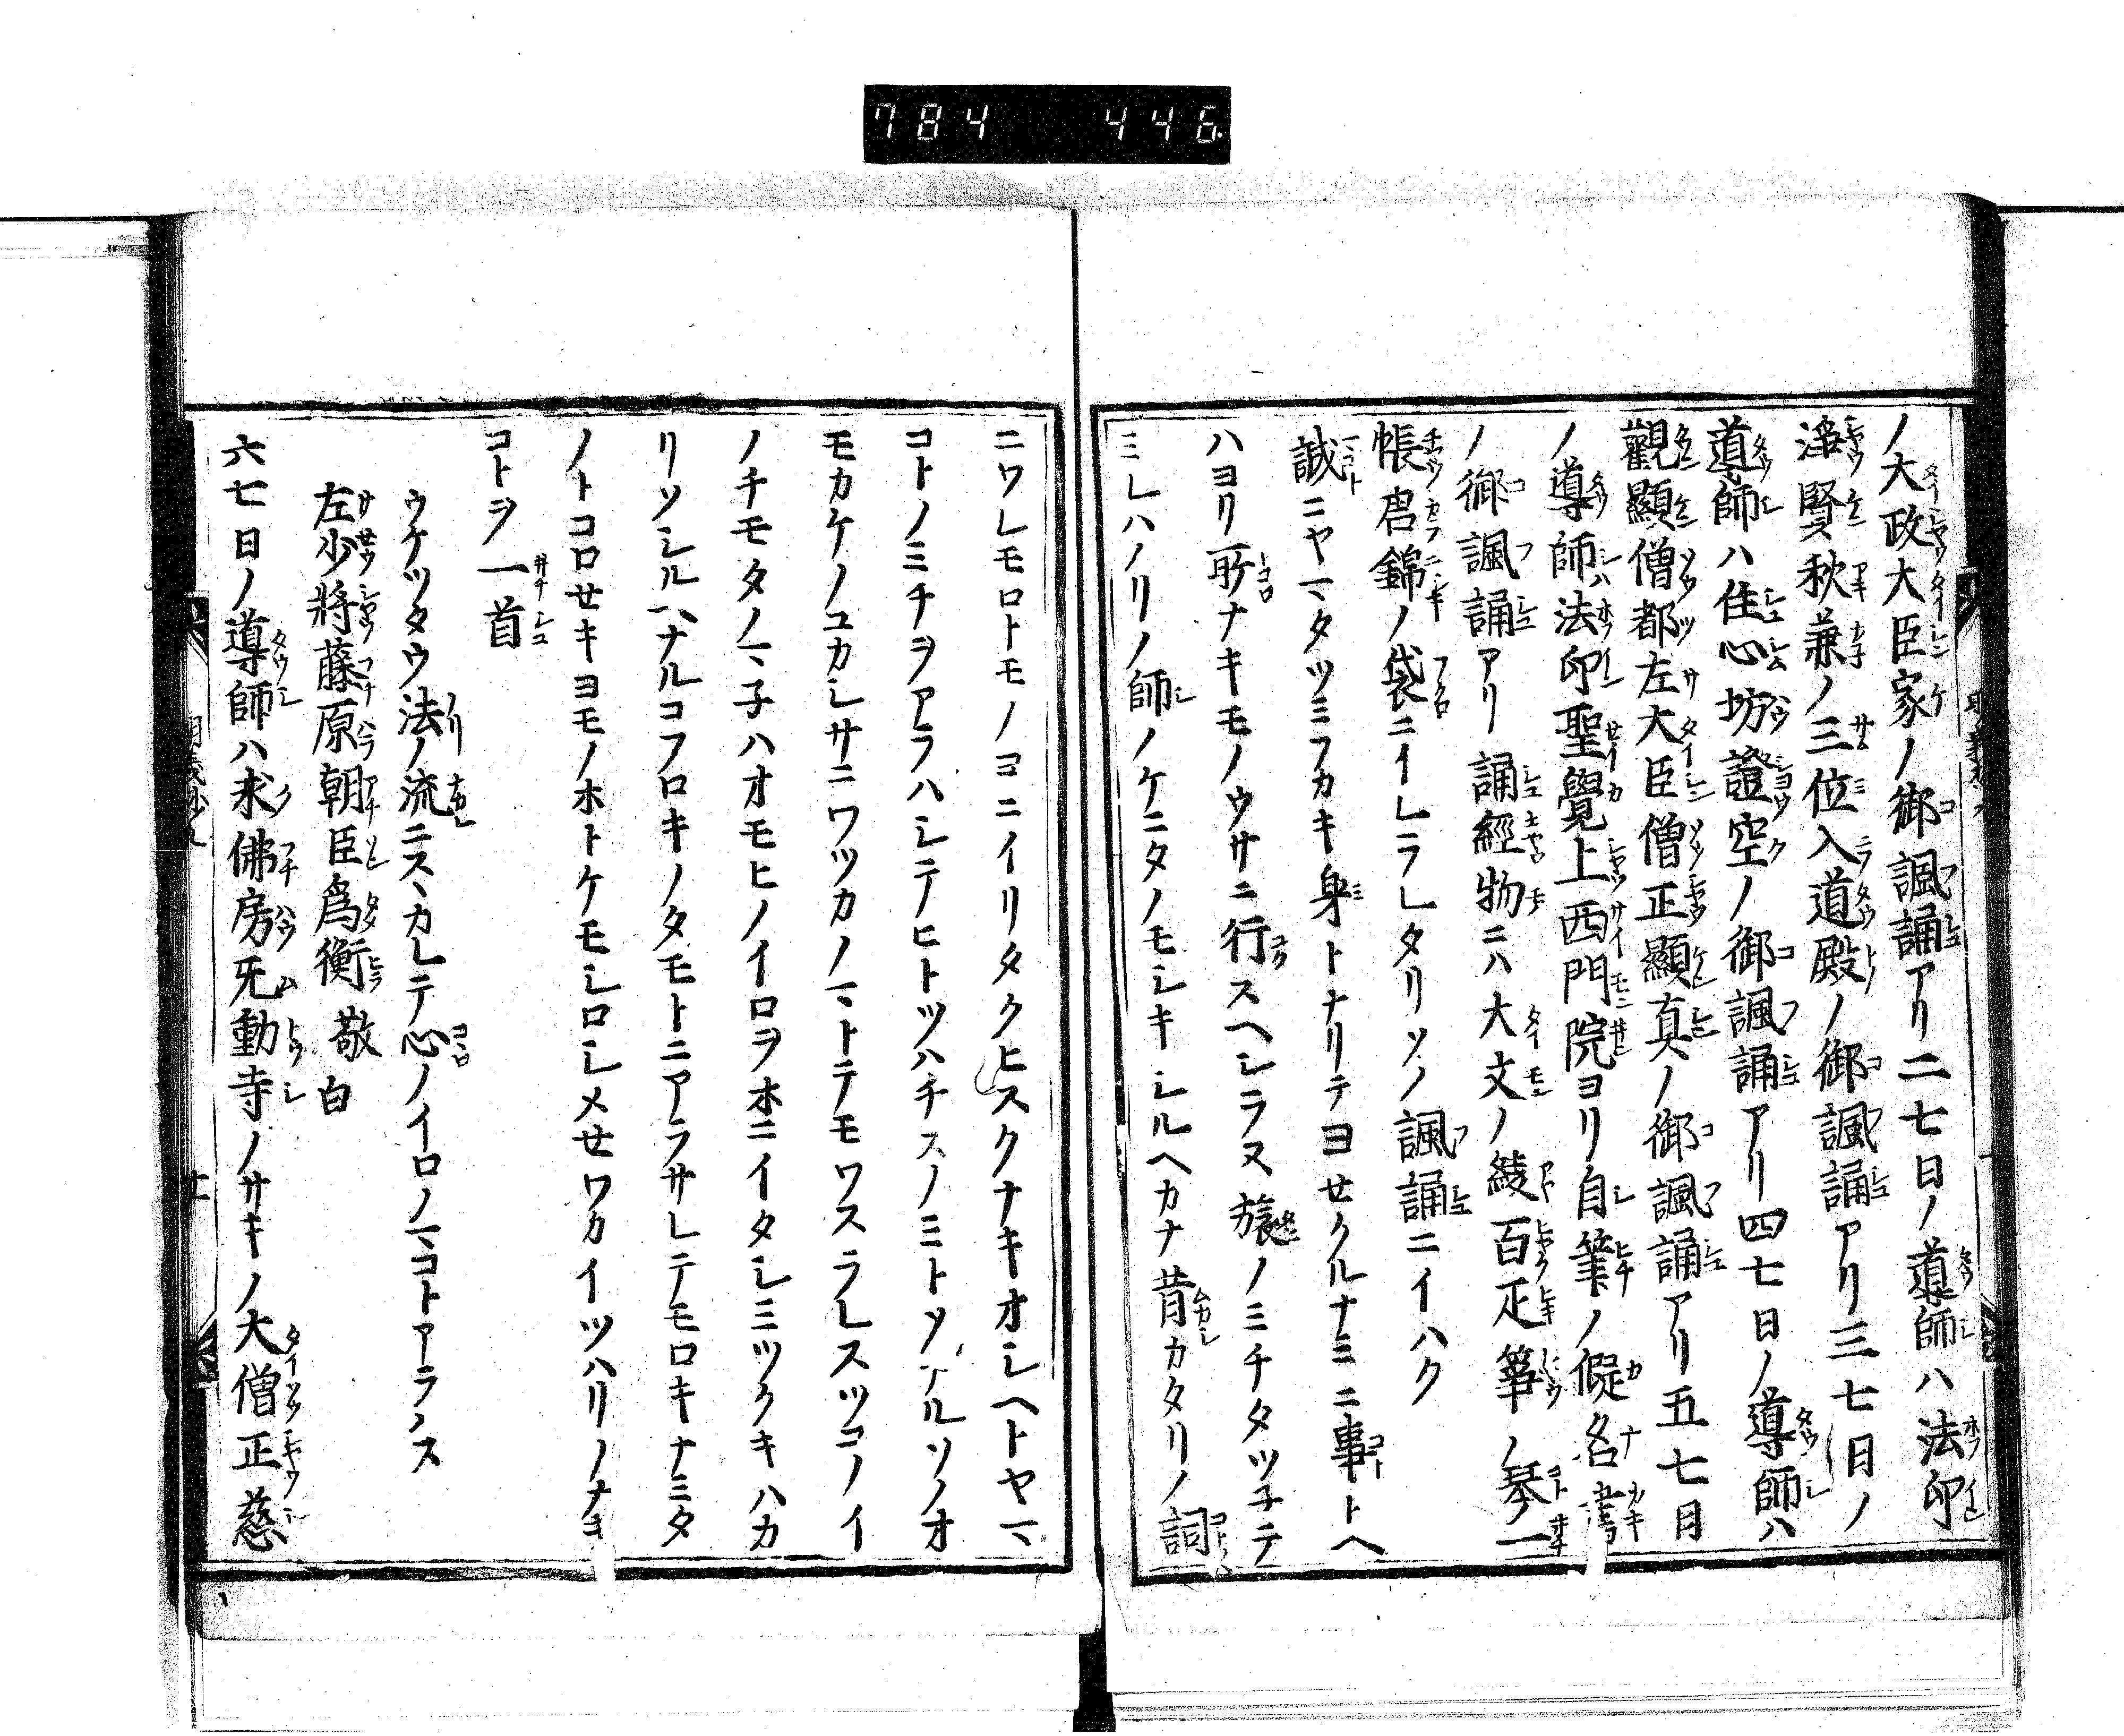 784 446
ノ大政大臣家ノ御諷誦アリ二七日ノ導師ハ法印
淨賢秋兼ノ三位入道殿ノ御諷誦アリ三七日ノ
導師ハ住心坊證空ノ御諷誦アリ四七日ノ導師ハ
觀顯僧都左大臣僧正顯真ノ御諷誦アリ五七日
ノ導師ハ法印聖覺上西門院ヨリ自筆ノ假名書
ノ御諷誦アリ誦經物ニハ大文ノ綾百疋箏ノ琴一
帳唐錦ノ袋ニイレラレタリソノ諷誦ニイハク
誠ニヤマタツミフカキ身トナリテヨセクルナミニ事トヘ
ハヨリ所ナキモノウサニ行スヘシラヌ旅ノミチタツ子テ
ミレハノリノ師ノケニタノモシキシルヘカナ昔カタリノ詞
ニワレモロトモノヨニイリタクヒスクナキオシヘトヤマ
コトノミチヲアラハシテヒトツハチスノミトソナルソノオ
モカケノユカシサニワツカノマトテモワスラレスツ子ノイ
ノチモタノマ子ハオモヒノイロヲホニイタシミツクキハカ
リソシルヘナルコフロキノタモトニアラサレテモロキナミタ
ノトコロセキヨモノホトケモシロシメセワカイツハリノナキ
コトヲ一首
ウケツタウ法ノ流ニスヽカレテ心ノイロノマコトアラハス
左少將藤原朝臣爲衡敬白
六七日ノ導師ハ求佛房无動寺ノサキノ大僧正慈